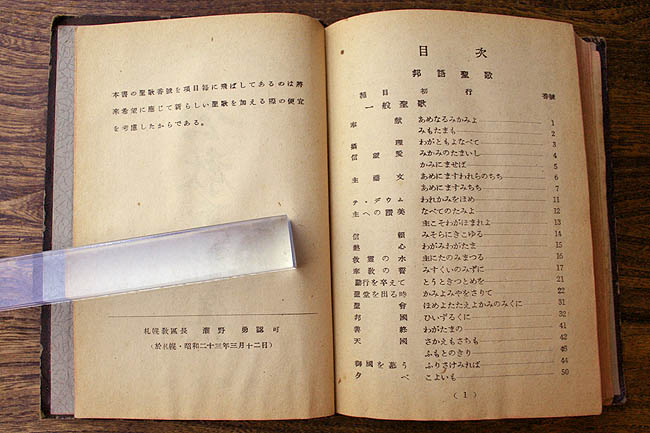 本書の聖歌番號を項目每に飛ばしてあるのは將
來希望に應じて新らしい聖歌を加える際の便宜
を考慮したからである。
札幌教區長 瀨野 勇認可
(於札幌・昭和二十三年三月十二日)
目次
邦語聖歌
種目 初行 番號
一般聖歌
奉獻 あめなるみかみよ 1
みもたまも 2
攝理 わがともよなべて 3
信望愛 みかみのたまいし 4
かみにませば 5
主禱文 あめにますわれらのちち 6
あめにますみちち 7
テ・デウム われかみをほめ 11
主への讚美 なべてのたみよ 12
主こそわがほまれよ 13
信賴 みそらにきこゆる 14
熱心 わがみわがたま 15
救靈の水 主にたのみまつる 16
奉教の誓 みすくいのみずに 17
勤行を卒えて とうときつとめを 21
聖堂を出る時 かみよみやをさりて 22
聖會 ほめよたたえよかみのみくに 31
邦國 ひいずるくに 32
善終 わがたまの 41
天國 さかえもさちも 42
ふもとのきり 43
御國を慕う ふりさけみれば 44
夕べ こよいも 50
(1)